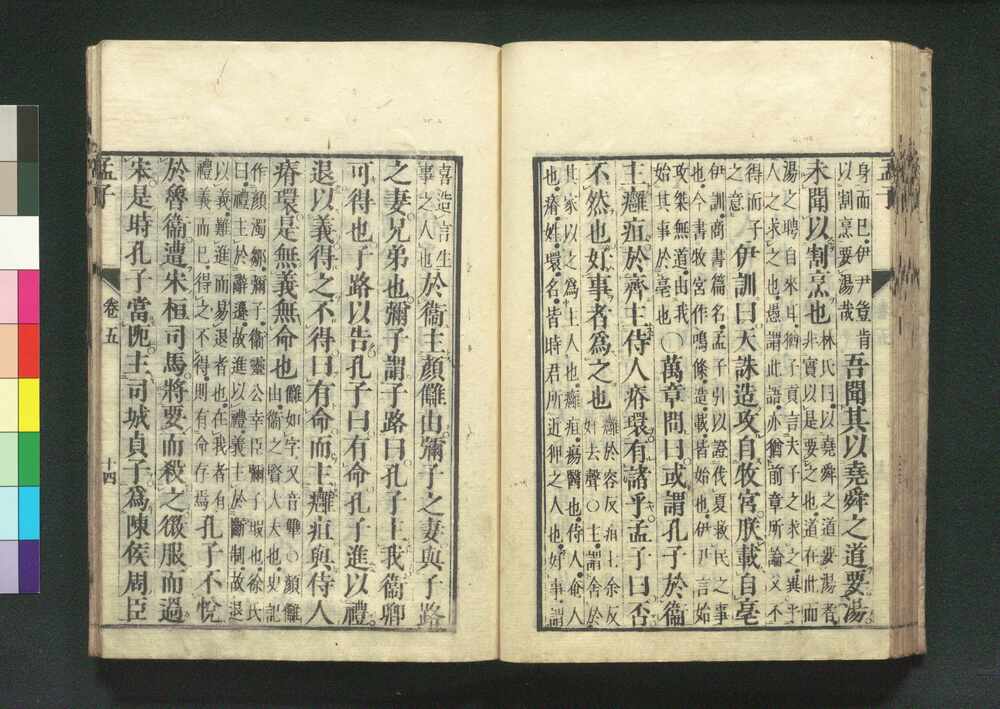 身而已伊尹豈肯
以割烹要湯哉
吾聞其以堯舜之道要湯
未聞以割烹也
林氏曰以堯舜之道要湯者
非實以是要之也道在此而
湯之聘自來耳猶子貢言夫子之求之異乎
人之求之也愚謂此語亦猶前章所論父不
得而子
之意
伊訓曰天誅造攻自牧宮朕載自亳
伊訓商書篇名孟子引以證伐夏救民之事
也今書牧宮作鳴條造載皆始也伊尹言始
攻桀無道由我
始其事於亳也
○萬章問曰或謂孔子於衞
主癰疽於齊主侍人瘠環有諸乎孟子曰否
不然也好事者爲之也
癰於容反疽七余反
好去聲○主謂舍於
其家以之爲主人也癰疽瘍醫也侍人奄人
也瘠姓環名皆時君所近狎之人也好事謂
喜造言生
事之人也
於衞主顏讎由彌子之妻與子路
之妻兄弟也彌子謂子路曰孔子主我衞卿
可得也子路以告孔子曰有命孔子進以禮
退以義得之不得曰有命而主癰疽與侍人
瘠環是無義無命也
讎如字又音犨○顏讎
由衞之賢大夫也史記
作顏濁鄒彌子衞靈公幸臣彌子瑕也徐氏
曰禮主於辭遜故進以禮義主於斷制故退
以義難進而易退者也在我者有
禮義而已得之不得則有命存焉
孔子不悅
於魯衞遭宋桓司馬將要而殺之微服而過
宋是時孔子當阨主司城貞子爲陳侯周臣
孟子
卷五
十四